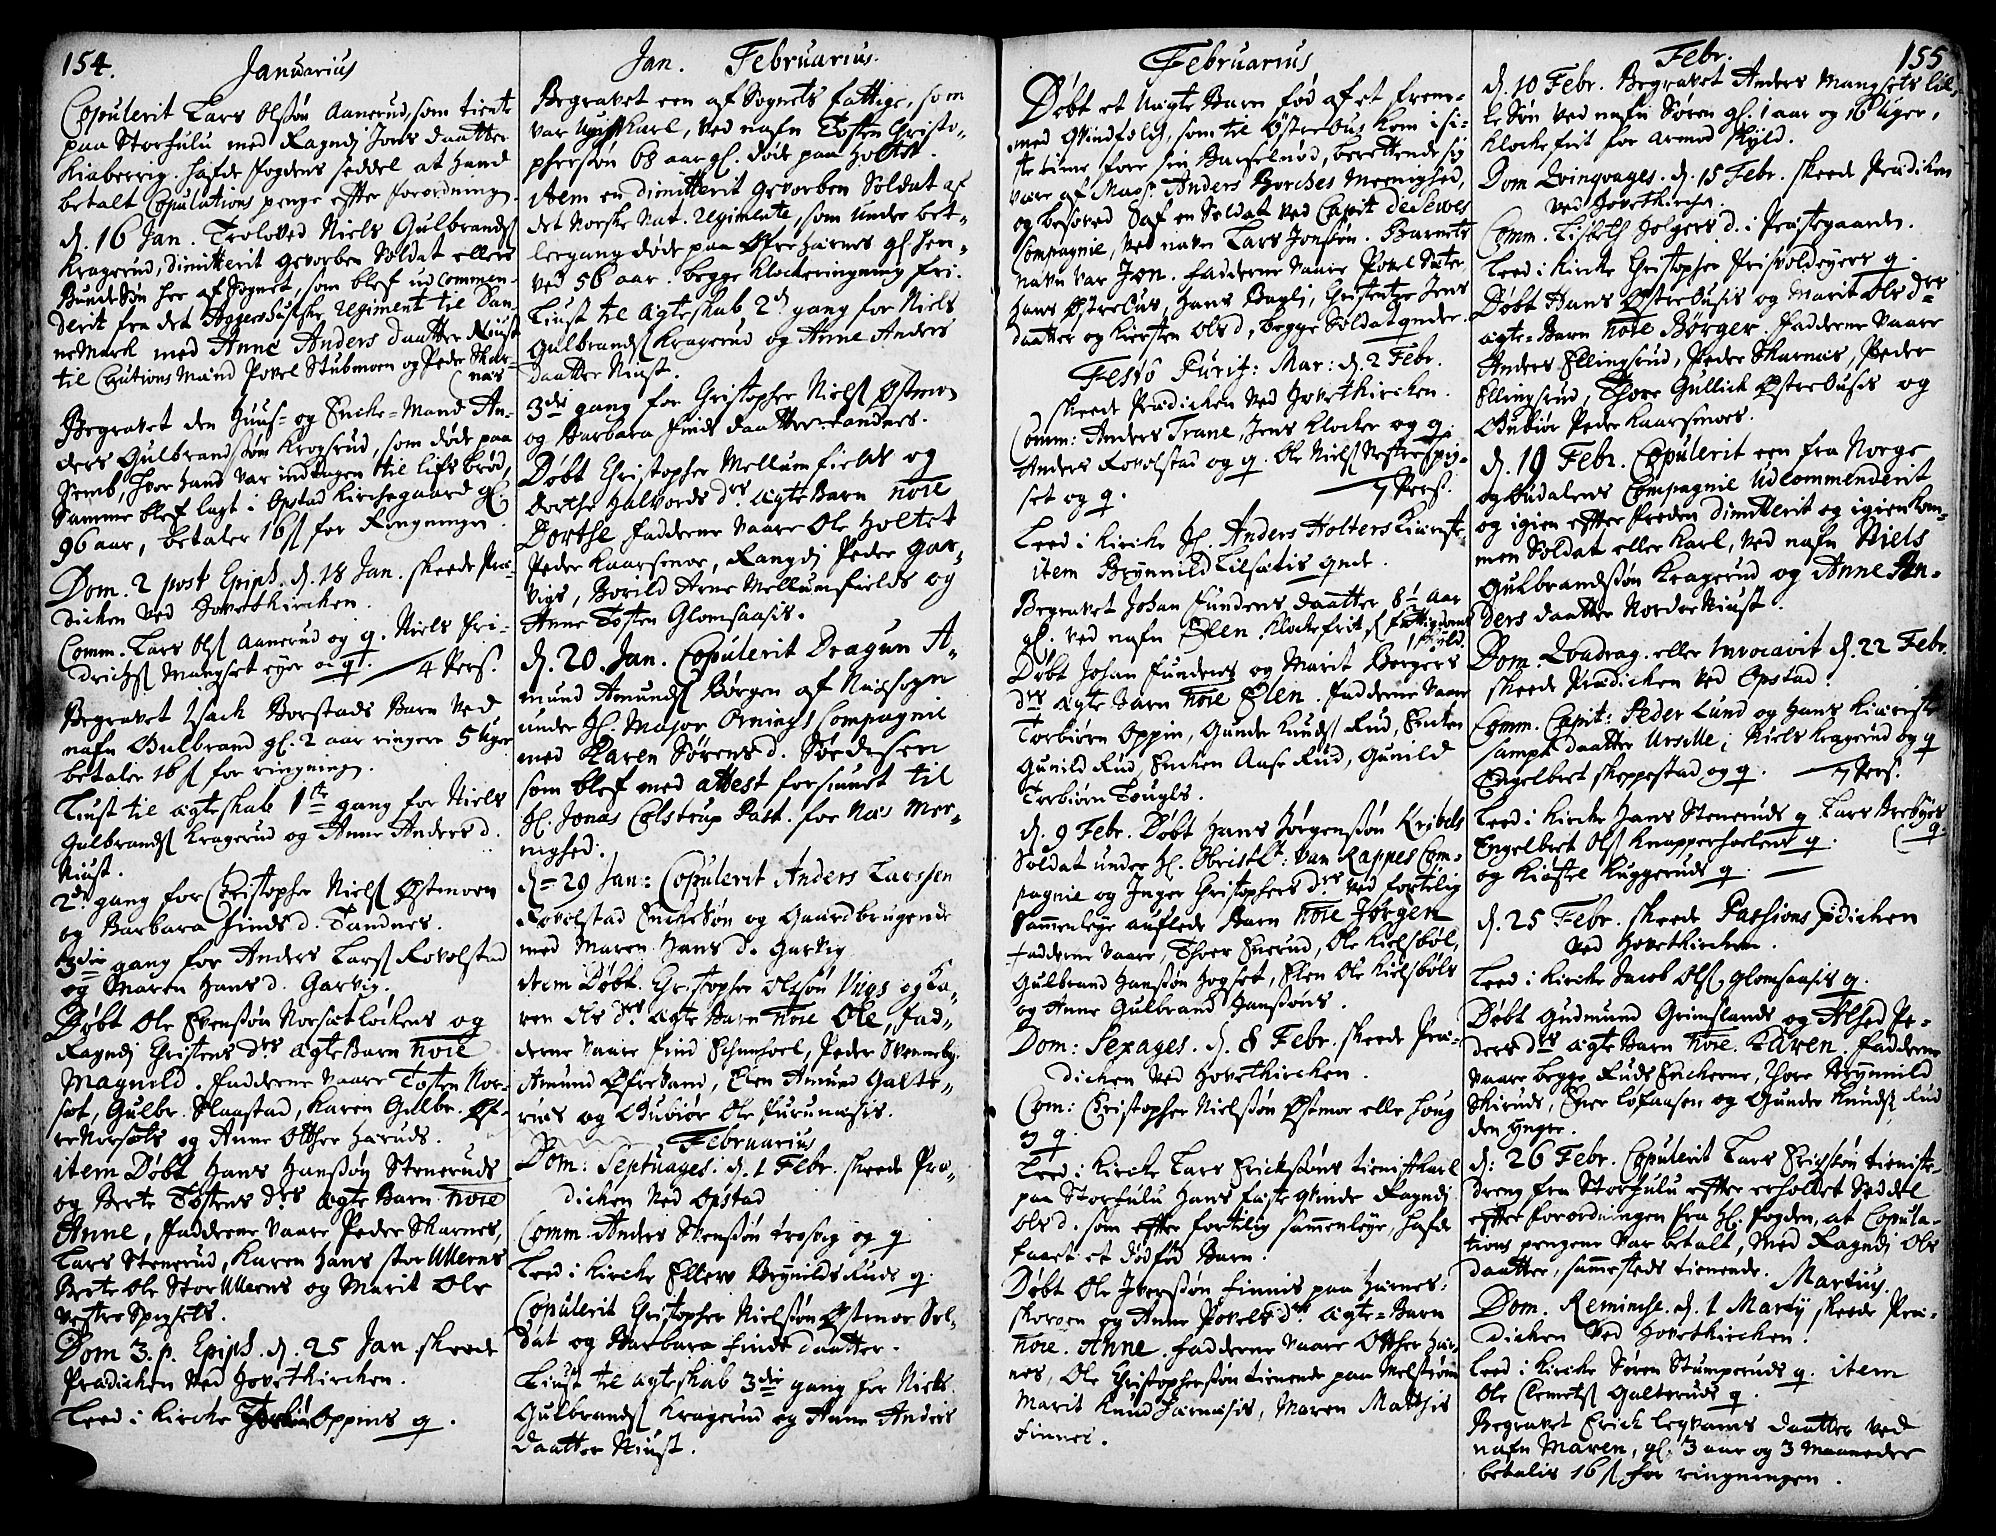 154.
Januarius
Copulerit Lars Olssøn Aanerud, som tiente
paa Storhulu med Ragndj Jons daatter
Kiaberrig. hafde fogdens seddel at hand
betalt Copulations penge effter forordningen.
d. 16 Jan. Troloved Niels Gulbrands
Kragerud, dimitterit gevorben Soldat ellers
BundeSøn her af Sognet, som blef ud commen-
derit fra det Aggershusiske regiment til Dan
nemark med Anne Anders daatter Niust
til Cautions Mænd Povel Stubmoen og Peder Skar-
næs
Begravet den Huus- og Encke-Mand An-
ders Gulbrandssøn Krogsrud, som døde paa
Semb, hvor hand var indtagen til lifs brød,
Samme blef lagt i Opstad Kirchegaard gl.
96 aar, betaler 16 s for Ringningen
Dom. 2 post Epiph. d. 18 Jan. skeede Præ-
dicken ved Hovetkircken.
Comm. Lars Ols Aanerud og q. Niels Fri-
drichs Mangset eyer og q. 4 Pers.
Begravet Isach Borstads Barn ved
nafn Gulbrand gl. 2 aar ringere 5 Uger
betaler 16 s for ringningen.
Liust til ægteskab 1ste gang for Niels
Gulbrands Kragerud og Anne Anders d.
Niust.
2den gang for Christopher Niels Østmoen
og Barbara Finds d. Sandnes.
3die gang for Anders Lars Rovolstad
og Maren Hans d. Garvig.
Døbt Ole Evenssøn Norsætløckens og
Ragndj Christens drs ægte Barn noie
Magnild. Fadderne vaare Tosten Nor-
sæt, Gulbr. Slaastad, Karen Gulbr. Øf-
re Norsæts og Anne Otther Haruds.
item Døbt Hans Hanssøn Steneruds
og Berte Tostens drs ægte Barn noie
Anne, Fadderne vaare Peder Skarnes,
Lars Stenerud, Karen Hans Stor Ullerns
Berte Ole Stor Ullerns og Marit Ole
Vestre Spigsets.
Dom 3. p. Epiph. d. 25 Jan. skeede
Prædicken ved Hovetkircken.
Leed i Kircke Torbiør Oppins q.
Jan. Februarius.
Begravet een af Sognets fattige, som
var Ungkarl, ved nafn Tosten Christo-
phersøn 68 aar gl. døde paa Holtet.
item en dimitterit gevorben Soldat af
det Norske Nat. regimente, som under bet-
lergang døde paa Øfre Harnes gl. hen-
ved 56 aar. begge klockeringning fri.
Liust til ægteskab 2den gang for Niels
Gulbrands Kragerud og Anne Anders
daatter Niust.
3die gang for Christopher Niels Østmoen
og Barbara Finds daatter Sandnes.
Døbt Christopher Mellumfields og
Dorthe Halvords drs ægte Barn noie
Dorthe Fadderne vaare Ole Holtet
Peder Kaarsmoe, Rangdj Peder Gar-
vigs, Borild Arne Mellumfields og
Anne Tosten Glomsaasis.
d. 20. Jan. Copulerit Dragun A-
mund Amunds Børgen af Næssogn
under H. Major Ornings Compagnie
med Karen Sørens d. Sørdisen
som blef med attest forsiunt til
H. Jonas Colstrup Past. for Næs Me-
nighed.
d. 29 Jan: Copulerit Anders Larssen
Rovolstad Enckesøn og Gaardbrugende
med Maren Hans d. Garvig
item Døbt. Christopher Olssøn Vigs og Ka-
ren Ols drs ægte Barn noie Ole, Fad-
derne vaare Find Schinhoel, Peder Svenneby,
Amund Øfre Sand, Elen Amund Galte-
rias og Gubiør Ole Furunæsis.
Februarius
Dom: Septuages. d. 1 Febr. skeede Præ-
dicken ved Opstad
Comm. Anders Svenssøn Trøsvig og q
Leed i Kircke Ellers Brynilds Ruds q.
Copulerit Christopher Nielssøn Østmoe Sol-
dat og Barbara Finds daatter.
Liust til ægteskab 3die gang for Niels
Gulbrands Kragerud og Anne Anders
daatter Niust.
Februarius
Døbt et Uægte Barn fød af et frem-
med Qvindfolch, som til Østre Ous kom i si-
ste time for sin Barselnød, berettende sig
være af Mag. Anders Borches Meenighed,
og besoved af en Soldat ved Capit de Sewes
Compagnie, ved navn Lars Jonssøn. Barnets
navn var Jon. Fadderne vaare Povel Sæter
Hans Østre Ous, Hans Baglj, Christentze Jens
daatter og Kiersten Ols d, begge Soldat qnder.
Festo Purif: Mar: d. 2 Febr.
skeede Prædicken ved Hovetkircken.
Comm: Anders Trane, Jens Klocker og q
Anders Rovolstad og q. Ole Niels Vestre Spig-
set og q. 7 Pers.
Leed i Kircke H. Anders Holters Kiæreste
item Brynnild Lilsætis qnde.
Begravet Johan Fundens daatter 8½ Aar
gl. ved nafn Elen. Klocke frit f. fattigdoms
skyld
Døbt Johan Fundens og Marit Børgers
drs ægte Barn noie Elen. Fadderne vaare
Torbiørn Oppin, Gunder Knuds Rud, Encken
Gunild Rud, Encken Aase Rud, Gunild
Torbiørn Tougls.
d. 9 Febr. Døbt Hans Jørgenssøn Kribels
Soldat under H. Obrist Lt: van Kappes Com-
pagnie og Inger Christophers drs ved fortilig
Sammenleye auflede Barn noie Jørgen
Fadderne vaare, Thoer Enerud, Ole Kielsbøl,
Gulbrand Hanssøn Hogset, Elen Ole Kielsbøls
og Anne Gulbrand Hanssøns.
Dom: Sexages. d. 8 Febr. skeede Præ-
dicken ved Hovetkircken.
Com: Christopher Nielssøn Østmoe elle Houg
3 q.
Leed i Kircke Lars Erickssøns tienistkarl
paa Storhulu hans fæste qvinde Ragndj
Ols d. som effter fortilig sammenleye, hafde
faaet et dødfød Barn.
Døbt Ole Iverssøn Finnis paa Harnes-
skoven og Anne Povels drs ægte-Barn
noie. Anne. Fadderne vaare Otther Har-
nes, Ole Christopherssøn tienende paa Melstrøm
Marit Knud Harnæsis, Maren Matthis
Finnes.
Febr. 155
d. 10 Febr. Begravet Anders Mangsets lil-
le Søn ved nafn Søren gl. 1 aar og 16 Uger,
Klocke frit for Armod skyld.
Dom Qvinqvages. d. 15 Febr. skeede Prædicken
ved Hovetkirchen.
Comm. Lisbeth Holgers d. i Præstegaarden.
Leed i Kircke Christopher Frisvoldeyers q.
Døbt Hans Østre Ousis og Marit Ols drs
ægte-Barn noie Børger. Fadderne vaare
Anders Ellingsrud, Peder Skarnæs, Peder
Ellingsrud, Thore Gullich Østre Ousis og
Gubiør Peder Kaarsmoes.
d. 19 Febr. Copulerit een fra Norge
og Oudalens Compagnie Udcommenderit
og igien effter freden dimitterit og igienkom-
men Soldat eller Karl, ved nafn Niels
Gulbrandssøn Kragerud og Anne An-
ders daatter Nordre Niust.
Dom. Qvadrag. eller Invocavit d. 22 Febr.
skeede Prædicken ved Opstad.
Comm. Capit: Peder Lund og Hans Kiæreste
sampt daatter Ursille; Niels Kragerud og q
Engelbret Skyppestad og q. 7 Pers.
Leed i Kircke Hans Steneruds q Lars Brebyes
q.
Engelbret Ols Knapperholens q.
og Kiøstel Ruggeruds q.
d. 25 Febr. skeede Passions Pdicken
ved Hovetkircken.
Leed i Kircke Jacob Ols Glomsaasis q.
Døbt Gudmund Grimslands og Alhed Pe-
ders drs ægte Barn noie. Karen. Fadderne
vaare begge Ruds Enckerne, Thore Brynnild
Skiruds, Ener Lofaasen og Gunder Knuds Rud
den yngre.
d: 26 Febr. Copulerit Lars Erichssøn tieniste-
dreng fra Storhulu effter erholdet Seddel
effter forordningen fra H. Fogden, at Copula-
tions pengene var betalt, med Ragndj Ols
daatter, sammesteds tienende.
Martius.
Dom. Reminisc. d. 1 Martij skeede Præ-
dicken ved Hovetkircken.
Leed i Kircke Søren Stumperuds q. item
Ole Clemets Galteruds q.
Begravet Erich Legvams daatter ved
nafn Maren, gl. 3 aar og 3 Maaneder
betalis 16 s for ringningen.